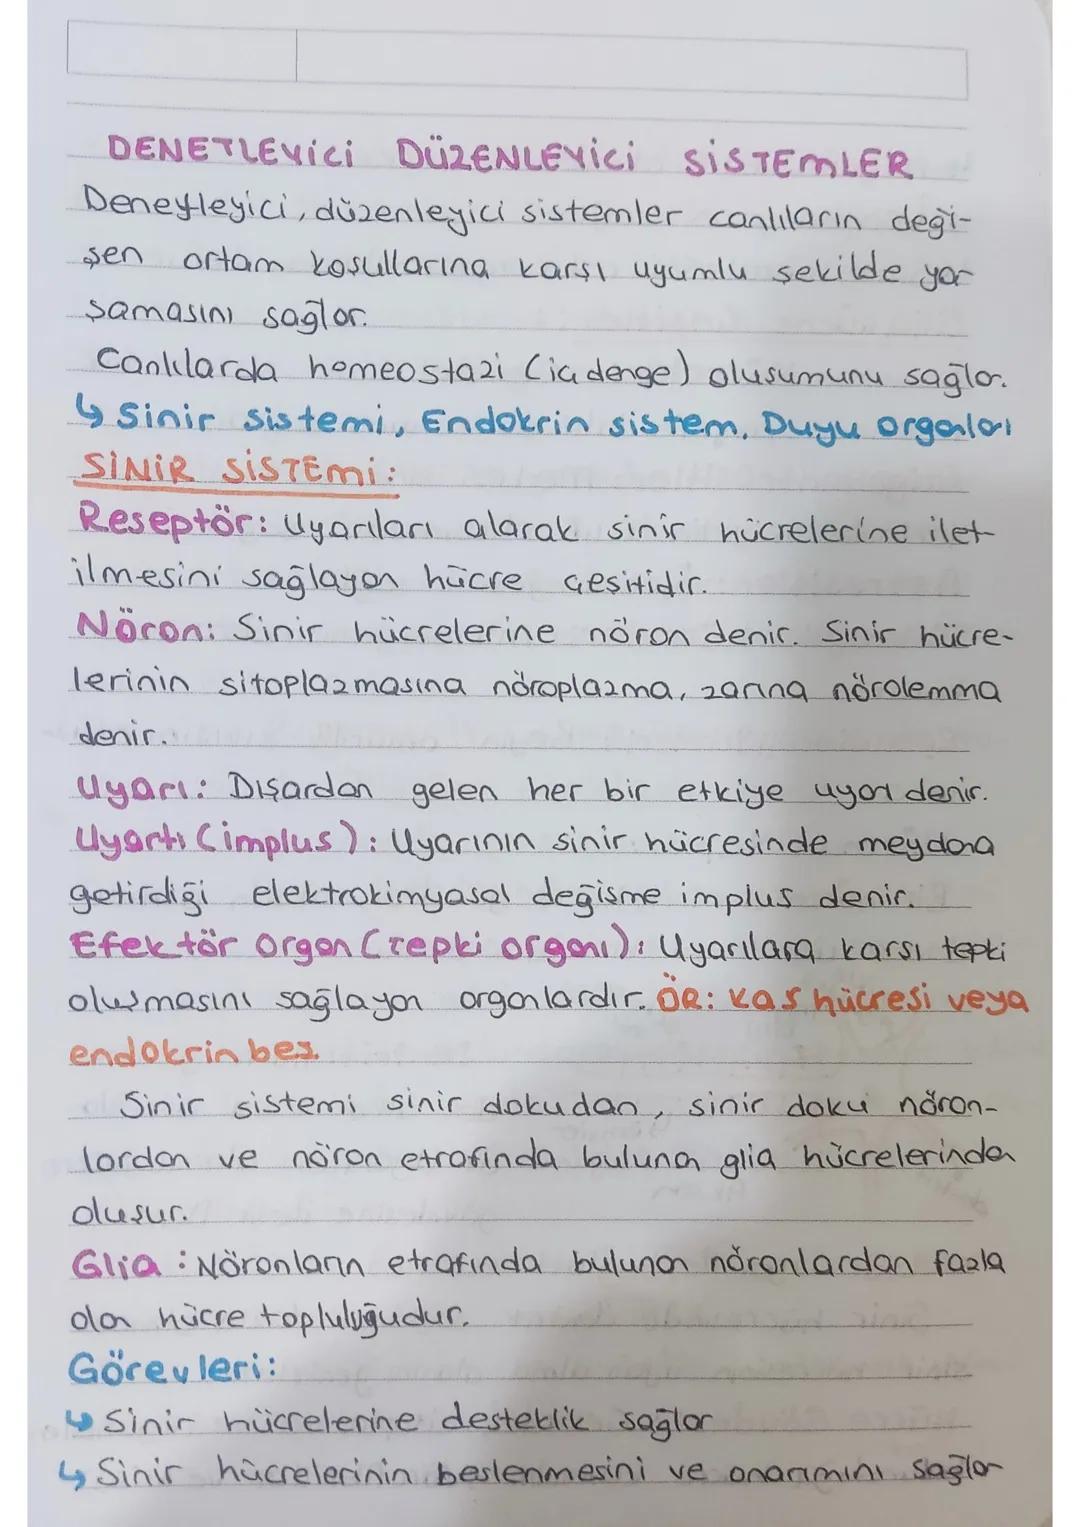 DENETLEYİCİ DÜZENLEYİCİ SİSTEMLER
Denetleyici, düzenleyici sistemler canlıların deği-
şen ortam koşullarına karşı uyumlu şekilde ya-
şamasını sağlar.
Canlılarda homeostazi (iç denge) oluşumunu sağlar.
↳ Sinir sistemi, Endokrin sistem, Duyu organları
SİNİR SİSTEMİ:
Reseptör: Uyarıları alarak sinir hücrelerine ilet-
ilmesini sağlayan hücre çeşitidir.
Nöron: Sinir hücrelerine nöron denir. Sinir hücre-
lerinin sitoplazmasına nöroplazma, zarına nörolemma
denir.
Uyarı: Dışardan gelen her bir etkiye uyarı denir.
Uyartı (implus): Uyarının sinir hücresinde meydana
getirdiği elektrokimyasal değişme implus denir.
Efektör Organ (Tepki organı): Uyarılara karşı tepki
oluşmasını sağlayan organlardır. ÖR: Kas hücresi veya
endokrin bez
Sinir sistemi sinir dokudan, sinir doku nöron-
lardan ve nöron etrafında bulunan glia hücrelerinden
oluşur.
Glia: Nöronların etrafında bulunan nöronlardan fazla
olan hücre topluluğudur.
Görevleri:
↳ Sinir hücrelerine desteklik sağlar
↳ Sinir hücrelerinin beslenmesini ve onarımını sağlar